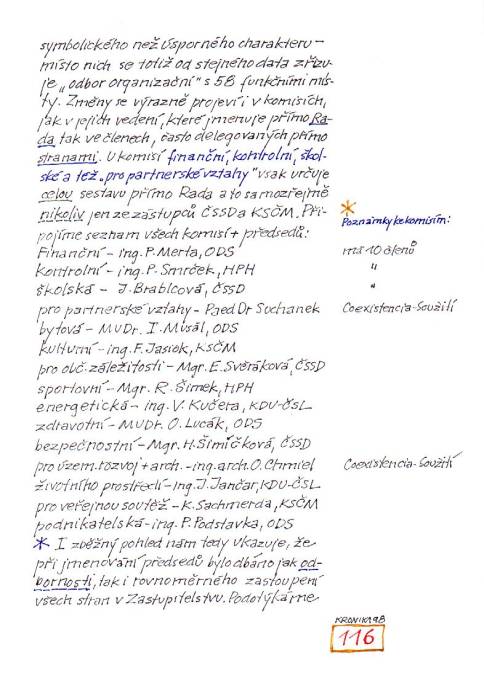 symbolického než úsporného charakteru –
místo nich se totiž od stejného data zřizu-
je „odbor organizační“ s 58 funkčními mís-
ty. Změny se výrazně projeví i v komisích,
jak v jejich vedení, které jmenuje přímo Ra-
da tak ve členech, často delegovaných přímo
stranami. U komisí finanční, kontrolní, škol-
ské a též „pro partnerské vztahy“ však určuje
celou sestavu přímo Rada a to samozřejmě
nikoliv jen ze zástupců ČSSD a KSČM. Při-
pojíme seznam všech komisí + předsedů:
Finanční – ing. P. Merta, ODS
kontrolní – ing. P. Smrček, HPH
školská – J. Brablcová, ČSSD
pro partnerské vztahy – Paed Dr Suchanek
bytová – MUDr. I. Musál, ODS
kulturní – ing. F. Jasiok, KSČM
pro obč. záležitosti – Mgr. E. Svěráková, ČSSD
sportovní – Mgr. R. Šimek, HPH
energetická – ing. V. Kučera, KDU-ČSL
zdravotní – MUDr. O. Lucák, ODS
bezpečnostní – Mgr. H. Šimíčková, ČSSD
pro územ. rozvoj + arch. – ing. arch. O. Chmiel
životního prostředí – ing. J. Jančar, KDU-ČSL
pro veřejnou soutěž – K. Sachmerda, KSČM
podnikatelská – ing. P. Podstavka, ODS
* I zběžný pohled nám tedy ukazuje, že
při jmenování předsedů bylo dbáno jak od-
bornosti, tak i rovnoměrného zastoupení
všech stran v Zastupitelstvu. Podotýkáme
*
Poznámky ke komisím:
má 10 členů
"
"
Coexistencia-Soužití
Coexistencia-Soužití
KRONIKA 98
116